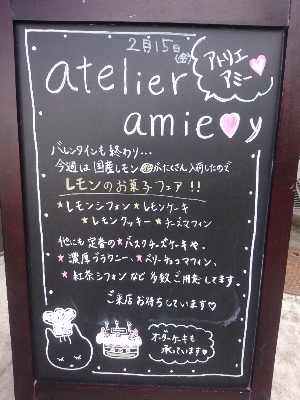 2月15日(金)
atelier
アトリエ
アミー
amie♥y
バレンタインも終わり…
今週は国産レモンがたくさん入荷したので
レモンのお菓子フェア!!
★レモンシフォン ★レモンケーキ
★レモンクッキー ★チーズマフィン
他にも定番の★バスクチーズケーキや、
★濃厚ブラウニー、★ベリーチョコマフィン、
★紅茶シフォンなど多数ご用意してます。
ご来店お待ちしています♡
オーダーケーキも
承っています♡